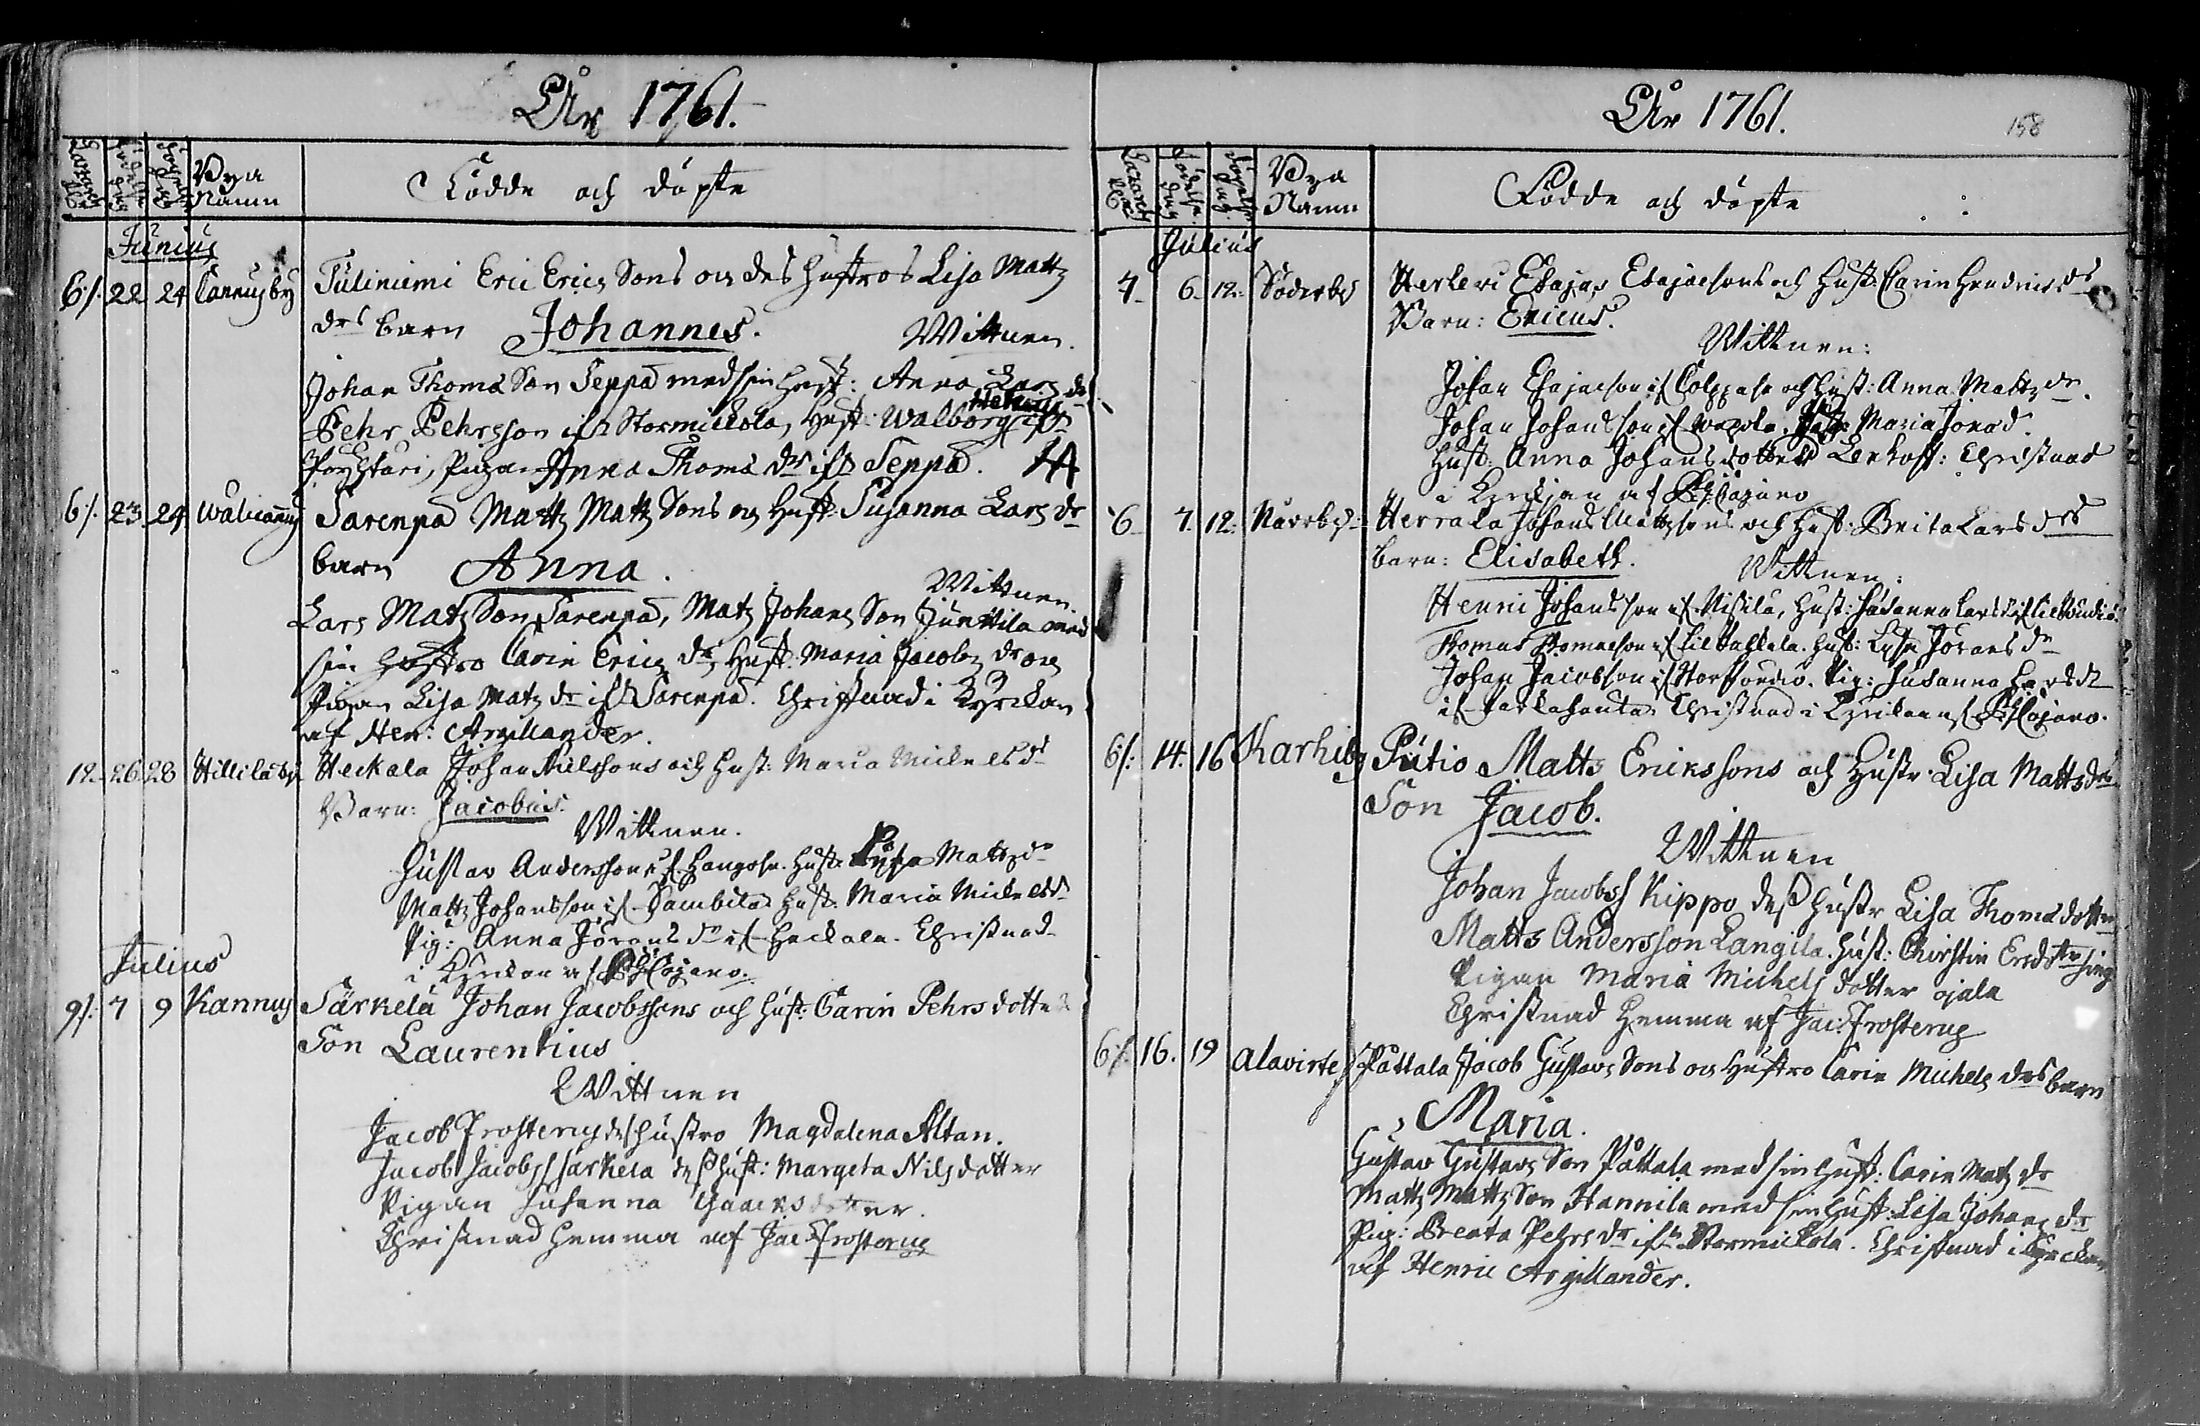 År 1761.
Bya
Namn
Födde och döpte
Junius
6/. 22 24 Cannusby Tulinimi Eric Erics Sons och des hustros Lisa Matts
drs barn Johannes. Wittnen.
Johan Thomas Son Seppä med sin hust: Anna Lars dr
Pehr Pehrsson ifr Stormickola, Hust: Walborg
Pöyhtäri, Pigan Anna Thomas dr ifr Seppä.
6/. 23 24 Wälicannus Sarenpä Matts Matts Sons och Hust: Susanna Lars dr
barn Anna.
Wittnen.
Lars Mats Son Sarenpä, Mats Johans Son Junttila med
sin hustro Carin Erics dr, Hust: Maria Jacobs dr och
Pigan Lisa Mats dr ifr Sarenpä. Christnad i Kyrckan
af Hen: Argillander.
12. 26. 28 Hillilä by Heckala Johan Nielssons och Hust: Maria Mickelsdr
Barn: Jacobus.
Wittnen.
Gustav Andersson if Hust: Mattsdr
Matts Johansson if Hust: Maria Mickelsdr
Pig: Anna Jörans dr if Heckala. Christnad
i Kyrckan af Cajano.
Julius
9/. 7 9 Kannus Särkelä Johan Jacobssons och Hust: Carin Pehrsdotter
Son Laurentius
Wittnen
Jacob Frosterus des hustro Magdalena Altan.
Jacob Jacobss Särkelä dess hust: Margeta Nilsdotter
Pigan Susanna Isaacsdotter.
Christnad hemma af Jac: Frosterus
År 1761.
158
Bya
Namn
Födde och döpte
Julius
7. 6. 12. Söderby Herleri Esajas Esajaesons och Hust: Carin Hendricsdr
Barn: Ericus.
Wittnen:
Johan Esajaeson if Hust: Anna Mattsdr.
Johan Johansson if Maria Jonsd
Hust: Anna Johansdotter Christnad
i Kyrckan af Cajano
6. 7. 12. Nårrby Herrala Johan Mattssons och Hust: Brita Larsdrs
barn: Elisabeth. Wittnen:
Henric Johansson if Niskila, Hust: Susanna Larsdr if
Thomas Thomaeson if Hust: Lisa Jöransdr
Johan Jacobsson if Pig: Susanna Larsdr
if Christnad i Kyrckan af Cajano.
6/. 14. 16 Karhiby Putio Matts Erikssons och Hustr: Lisa Mattsdr
Son Jacob.
Wittnen
Johan Jacobss Kippo dess Hustr Lisa Thomasdotter
Matts Andersson Langila. Hust: Chirstin
Pigan Maria Michelsdotter Ojala
Christnad hemma af Jac: Frosterus
6/. 16. 19 Alavirte Påttala Jacob Gustavs Sons och Hustro Carin Michels drs barn
Maria.
Gustav Gustavs Son Påttala med sin hust: Carin Mats dr
Matts Matts Son Hannila med sin Hust: Lisa Johans dr
Pig: Breata Pehrs dr ifr Stormickola. Christnad i Kyrckan
af Henric Argillander.